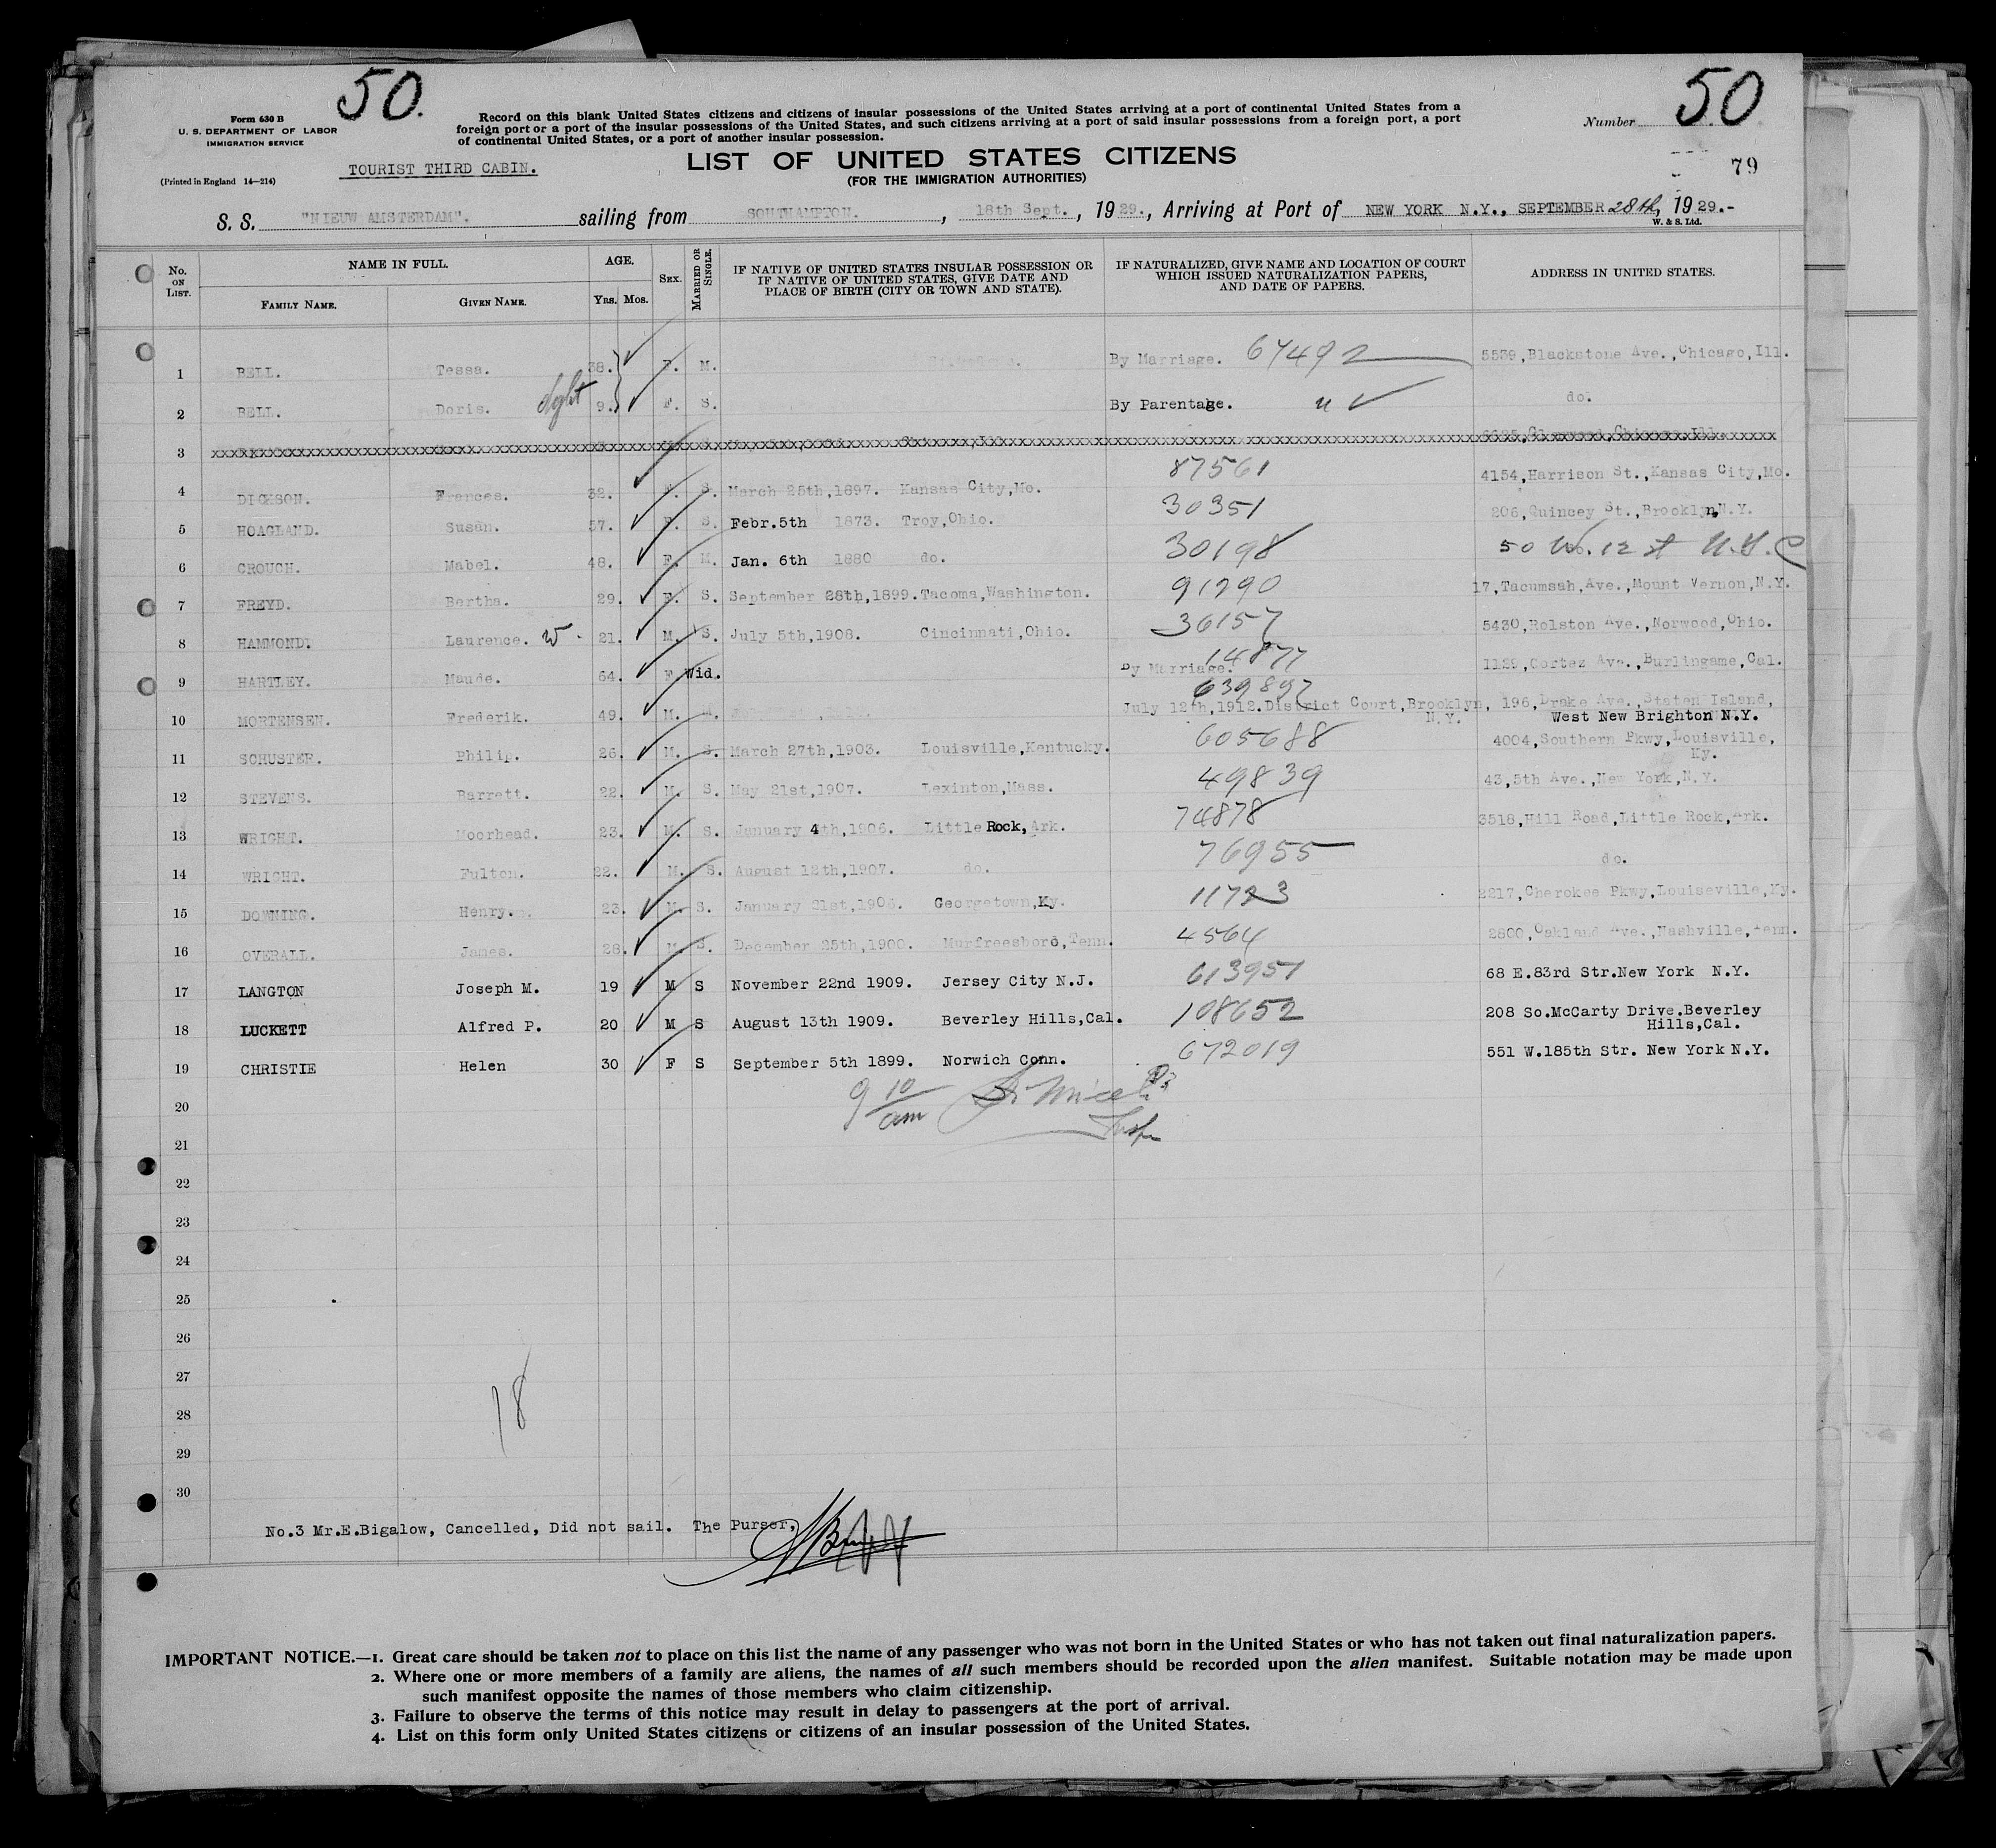 50.
50
Form 630 B
U. S. DEPARTMENT OF LABOR
IMMIGRATION SERVICE
(Printed in England 14—214)
TOURIST THIRD CABIN.
Record on this blank United States citizens and citizens of insular possessions of the United States arriving at a port of continental United States from a
foreign port or a port of the insular possessions of the United States, and such citizens arriving at a port of said insular possessions from a foreign port, a port
of continental United States, or a port of another insular possession.
Number
79
LIST OF UNITED STATES CITIZENS
(FOR THE IMMIGRATION AUTHORITIES)
S. S. "NIEUW AMSTERDAM". sailing from SOUTHAMPTON. , 18th Sept. , 1929., Arriving at Port of NEW YORK N.Y., SEPTEMBER 28th, 1929.-
W. & S. Ltd.
No. ON LIST. NAME IN FULL. FAMILY NAME. GIVEN NAME. AGE. YRS. MOS. SEX. MARRIED OR SINGLE. IF NATIVE OF UNITED STATES INSULAR POSSESSION OR IF NATIVE OF UNITED STATES, GIVE DATE AND PLACE OF BIRTH (CITY OR TOWN AND STATE). IF NATURALIZED, GIVE NAME AND LOCATION OF COURT WHICH ISSUED NATURALIZATION PAPERS, AND DATE OF PAPERS. ADDRESS IN UNITED STATES.
1 BELL. Tessa. 38. F. M. By Marriage. 67492 5539, Blackstone Ave., Chicago, Ill.
2 BELL. Doris. dght 9. F. S. By Parentage. " do.
3 xxxxxxxxxxxxxxxxxxxx
4 DICKSON. Frances. 32. F. S. March 25th, 1897. Kansas City, Mo. 87561 4154, Harrison St., Kansas City, Mo.
5 HOAGLAND. Susan. 57. F. S. Febr. 5th 1873. Troy, Ohio. 30351 206, Quincey St., Brooklyn, N.Y.
6 CROUCH. Mabel. 48. F. M. Jan. 6th 1880 do. 30198 50 W. 12 st N.Y.C
7 FREYD. Bertha. 29. F. S. September 28th, 1899. Tacoma, Washington. 91290 17, Tacumsah, Ave., Mount Vernon, N.Y.
8 HAMMOND. Laurence. W. 21. M. S. July 5th, 1908. Cincinnati, Ohio. 36157 5430, Rolston Ave., Norwood, Ohio.
9 HARTLEY. Maude. 64. F Wid. By Marriage. 14877 1129, Cortez Ave., Burlingame, Cal.
10 MORTENSEN. Frederik. 49. M. M. 639897 July 12th, 1912. District Court, Brooklyn, N.Y. 196, Drake Ave., Staten Island, West New Brighton N.Y.
11 SCHUSTER. Philip. 26. M. S. March 27th, 1903. Louisville, Kentucky. 605688 4004, Southern Pkwy, Louisville, Ky.
12 STEVENS. Barrett. 22. M. S. May 21st, 1907. Lexinton, Mass. 49839 43, 5th Ave., New York, N.Y.
13 WRIGHT. Moorhead. 23. M. S. January 4th, 1906. Little Rock, Ark. 74878 3518, Hill Road, Little Rock, Ark.
14 WRIGHT. Fulton. 22. M. S. August 12th, 1907. do. 76955 do.
15 DOWNING. Henry. 23. M. S. January 31st, 1906. Georgetown, Ky. 11723 2217, Cherokee Pkwy, Louiseville, Ky.
16 OVERALL. James. 28. M. S. December 25th, 1900. Murfreesboro, Tenn. 4564 2800, Oakland Ave., Nashville, Tenn.
17 LANGTON Joseph M. 19 M S November 22nd 1909. Jersey City N.J. 613951 68 E.83rd Str.New York N.Y.
18 LUCKETT Alfred P. 20 M S August 13th 1909. Beverley Hills,Cal. 108652 208 So.McCarty Drive.Beverley Hills,Cal.
19 CHRISTIE Helen 30 F S September 5th 1899. Norwich Conn. 672019 551 W.185th Str. New York N.Y.
20 9 10 am
21
22
23
24
25
26
27
28
29
30
18
No.3 Mr.E.Bigalow, Cancelled, Did not sail. The Purser,
IMPORTANT NOTICE.—1. Great care should be taken not to place on this list the name of any passenger who was not born in the United States or who has not taken out final naturalization papers.
2. Where one or more members of a family are aliens, the names of all such members should be recorded upon the alien manifest. Suitable notation may be made upon
such manifest opposite the names of those members who claim citizenship.
3. Failure to observe the terms of this notice may result in delay to passengers at the port of arrival.
4. List on this form only United States citizens or citizens of an insular possession of the United States.